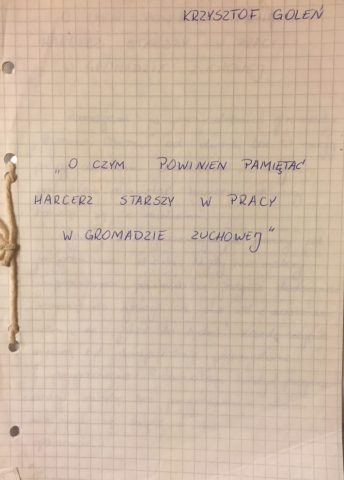 KRZYSZTOF GOLEŃ
„O CZYM POWINIEN PAMIĘTAĆ
HARCERZ STARSZY W PRACY
W GROMADZIE ZUCHOWEJ"